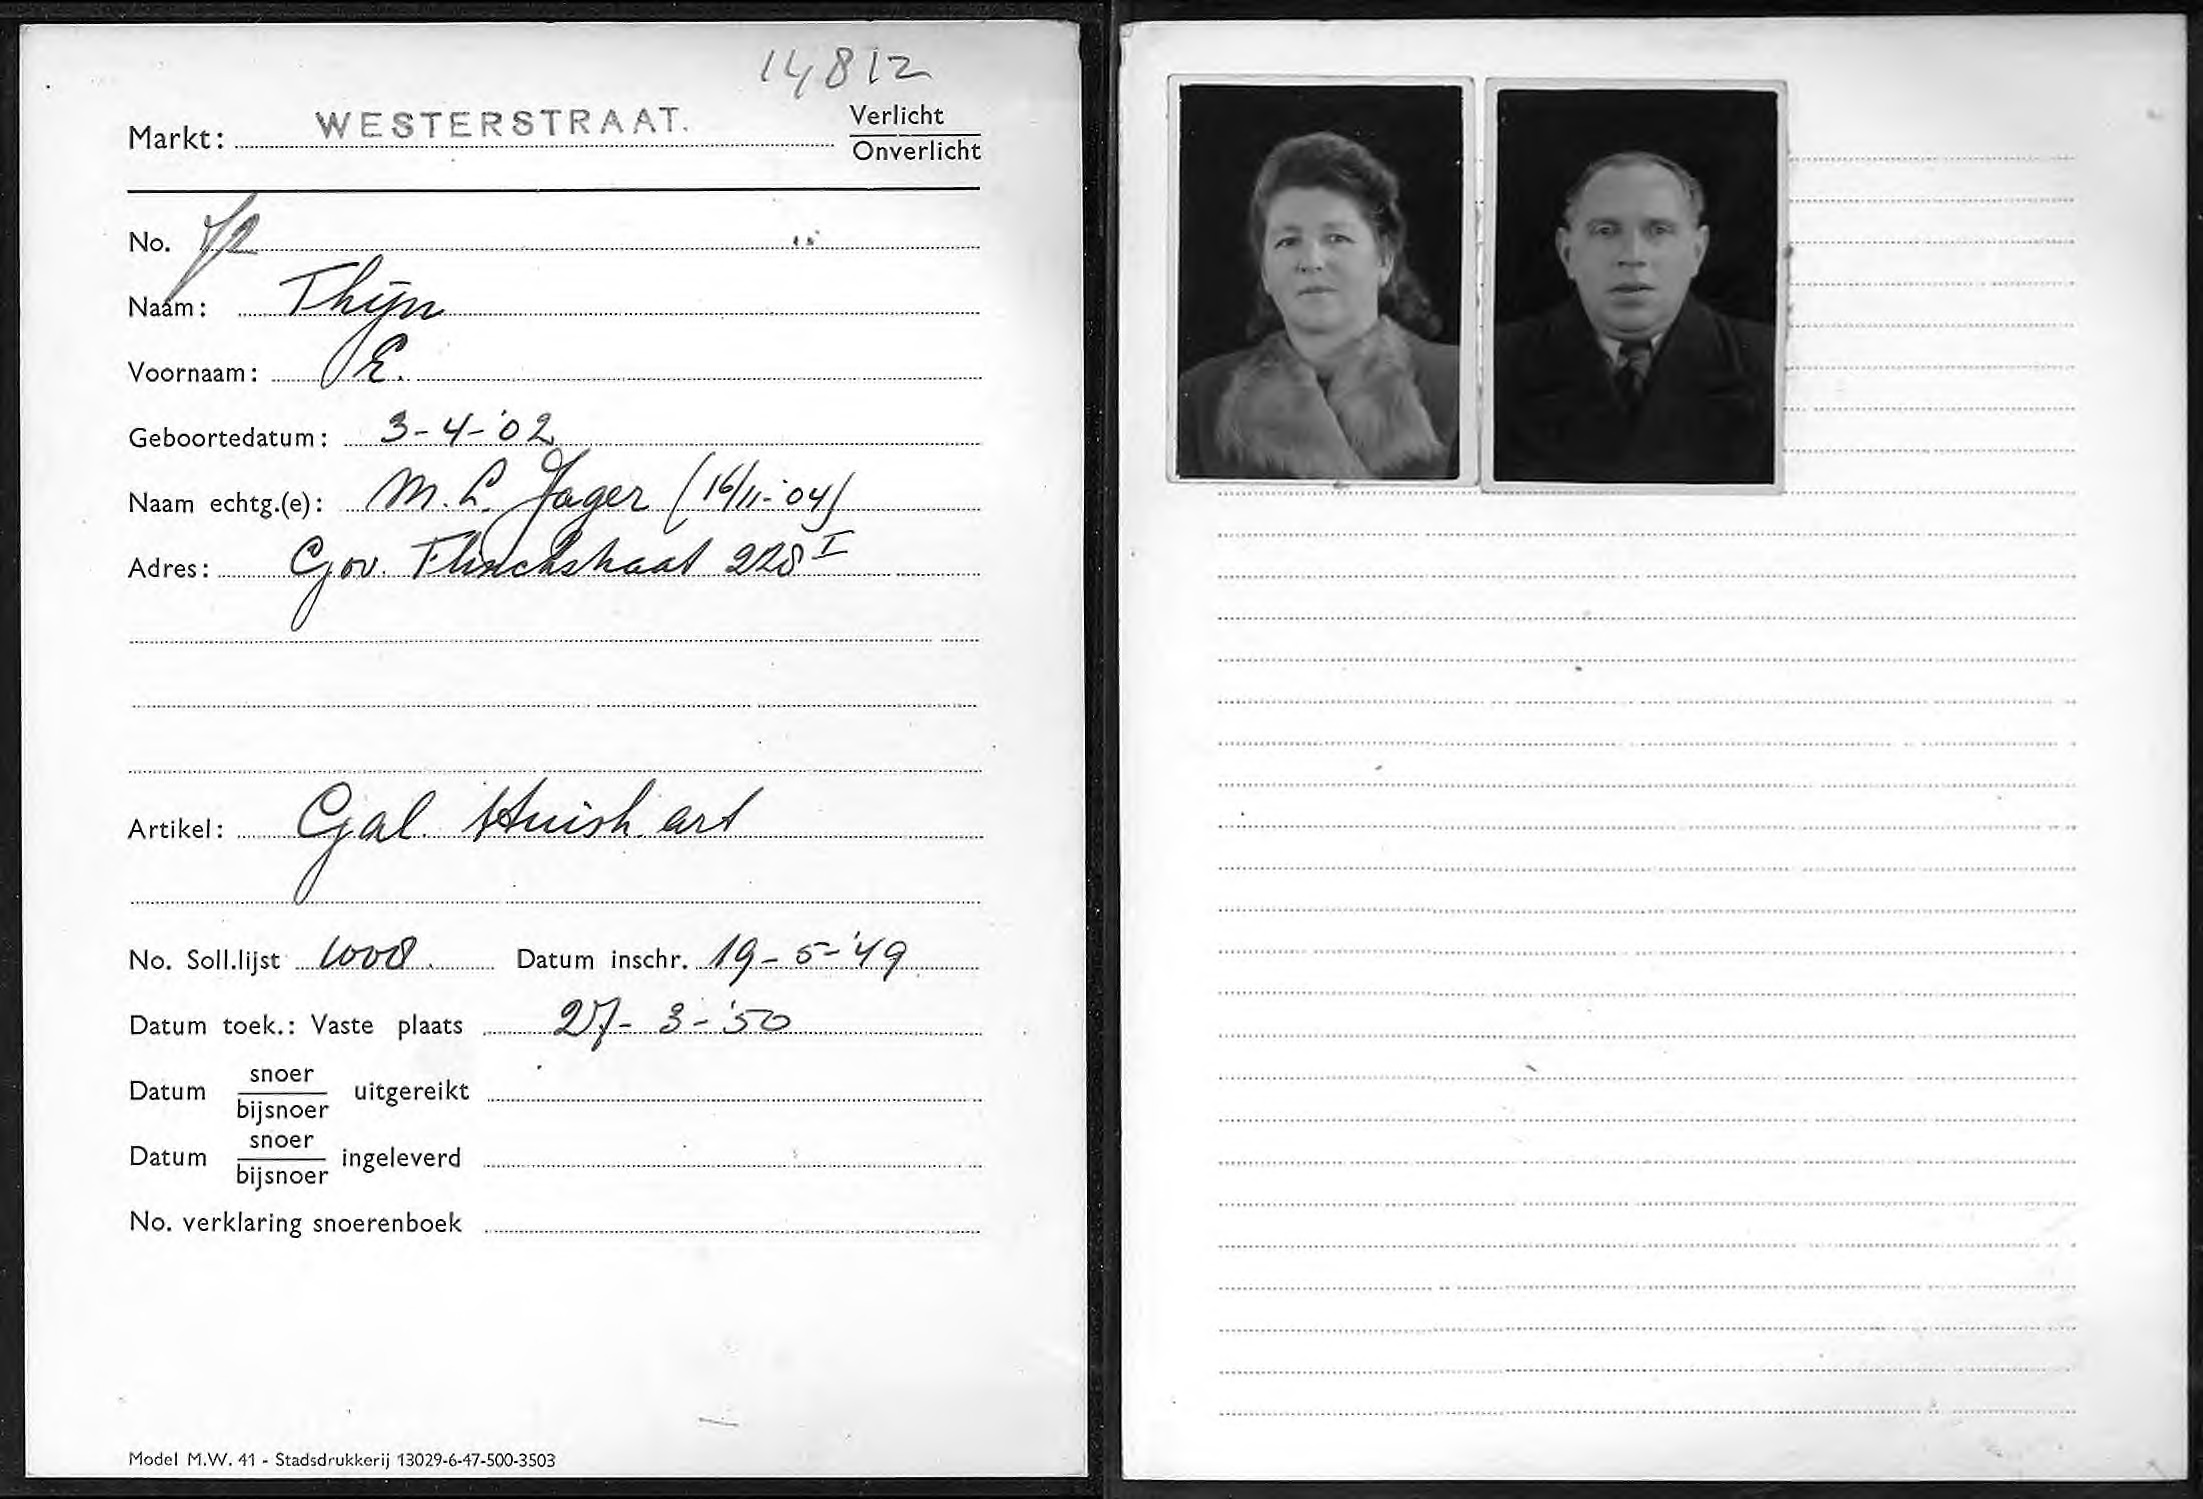 14812
Markt: WESTERSTRAAT. Verlicht
Onverlicht
No. 72
Naam: Thijn
Voornaam: E.
Geboortedatum: 3-4-'02
Naam echtg.(e): M. L. Jager (16/11-'04)
Adres: Gov. Flinckstraat 228 I
Artikel: Gal. Huish. art
No. Soll.lijst 1008. Datum inschr. 19-5-'49
Datum toek.: Vaste plaats 27-3-'50
Datum snoer
bijsnoer uitgereikt
Datum snoer
bijsnoer ingeleverd
No. verklaring snoerenboek
Model M.W. 41 - Stadsdrukkerij 13029-6-47-500-3503